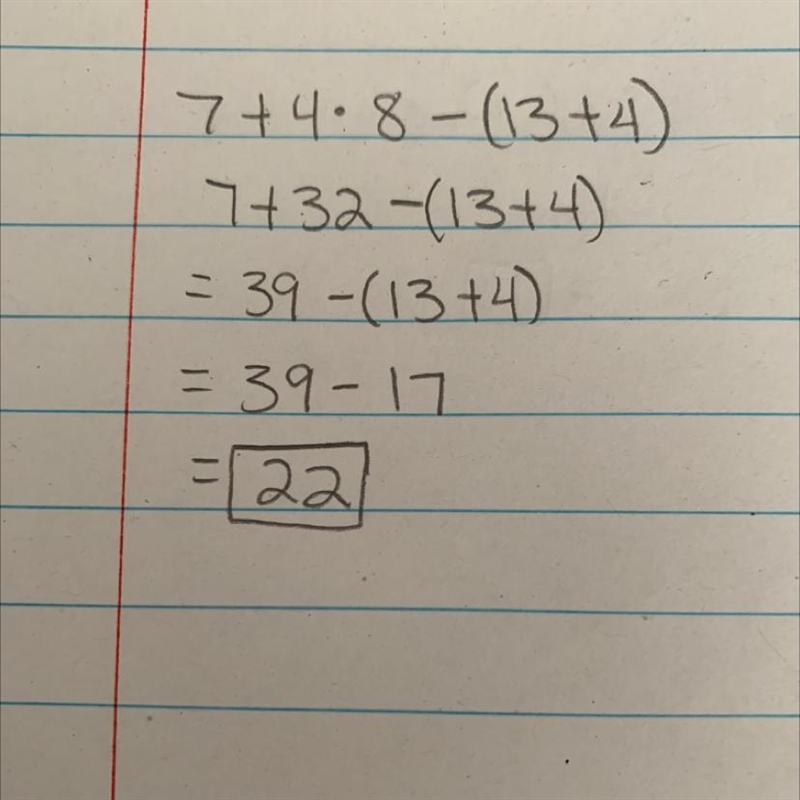 7 + 4 · 8 - (13 + 4)
7 + 32 - (13 + 4)
= 39 - (13 + 4)
= 39 - 17
= 22